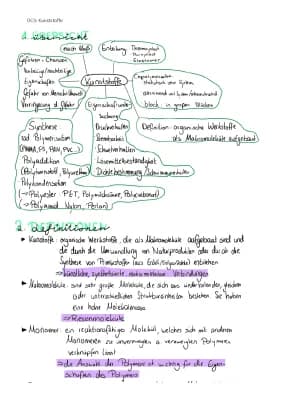 OC3: Kunststoffe
1. Übersicht
nach Kleiß
Einteilung: Thermoplast
Duroplast
Elastomer
Gefahren - Chancen
Eigenschaften
Verringerung d. Gefahr
Kunststoffe
alternierend
block: in großen Blöcken
Synthese
rad. Polymerisation
Polyaddition
Polykondensation
(→ Polyester: PET, Polymilchsäure, Polycarbonat)
(→ Polyamid: Nylon, Perlon)
Eigenschaften
Bruchverhalten
Brennbarkeit
Schmelzverhalten
Lösemittelbeständigkeit
Dichtebestimmung / Schwimmverhalten
Definition: organische Werkstoffe
als Makromoleküle aufgebaut
2. Definitionen
► Kunstoffe: organische Werkstoffe, die als Makromoleküle aufgebaut sind und
die durch die Umwandlung von Naturprodukten oder durch die
Synthese von Primärstoffen (aus Erdöl/Erdgas/Kohle) entstehen
⇒ künstliche, synthetisierte, makromolekulare Verbindungen
► Makromoleküle: sind sehr große Moleküle, die sich aus wiederholenden, gleichen
oder unterschiedlichen Struktureinheiten bestehen. Sie haben
eine hohe Molekülmasse
⇒ Riesenmoleküle
► Monomer: ein reaktionsfähiges Molekül, welches sich mit anderen
Monomeren zu unverzweigten o. verzweigten Polymeren
verknüpfen lässt
⇒ die Auswahl der Monomere ist wichtig für die Eigen-
schaften des Polymers